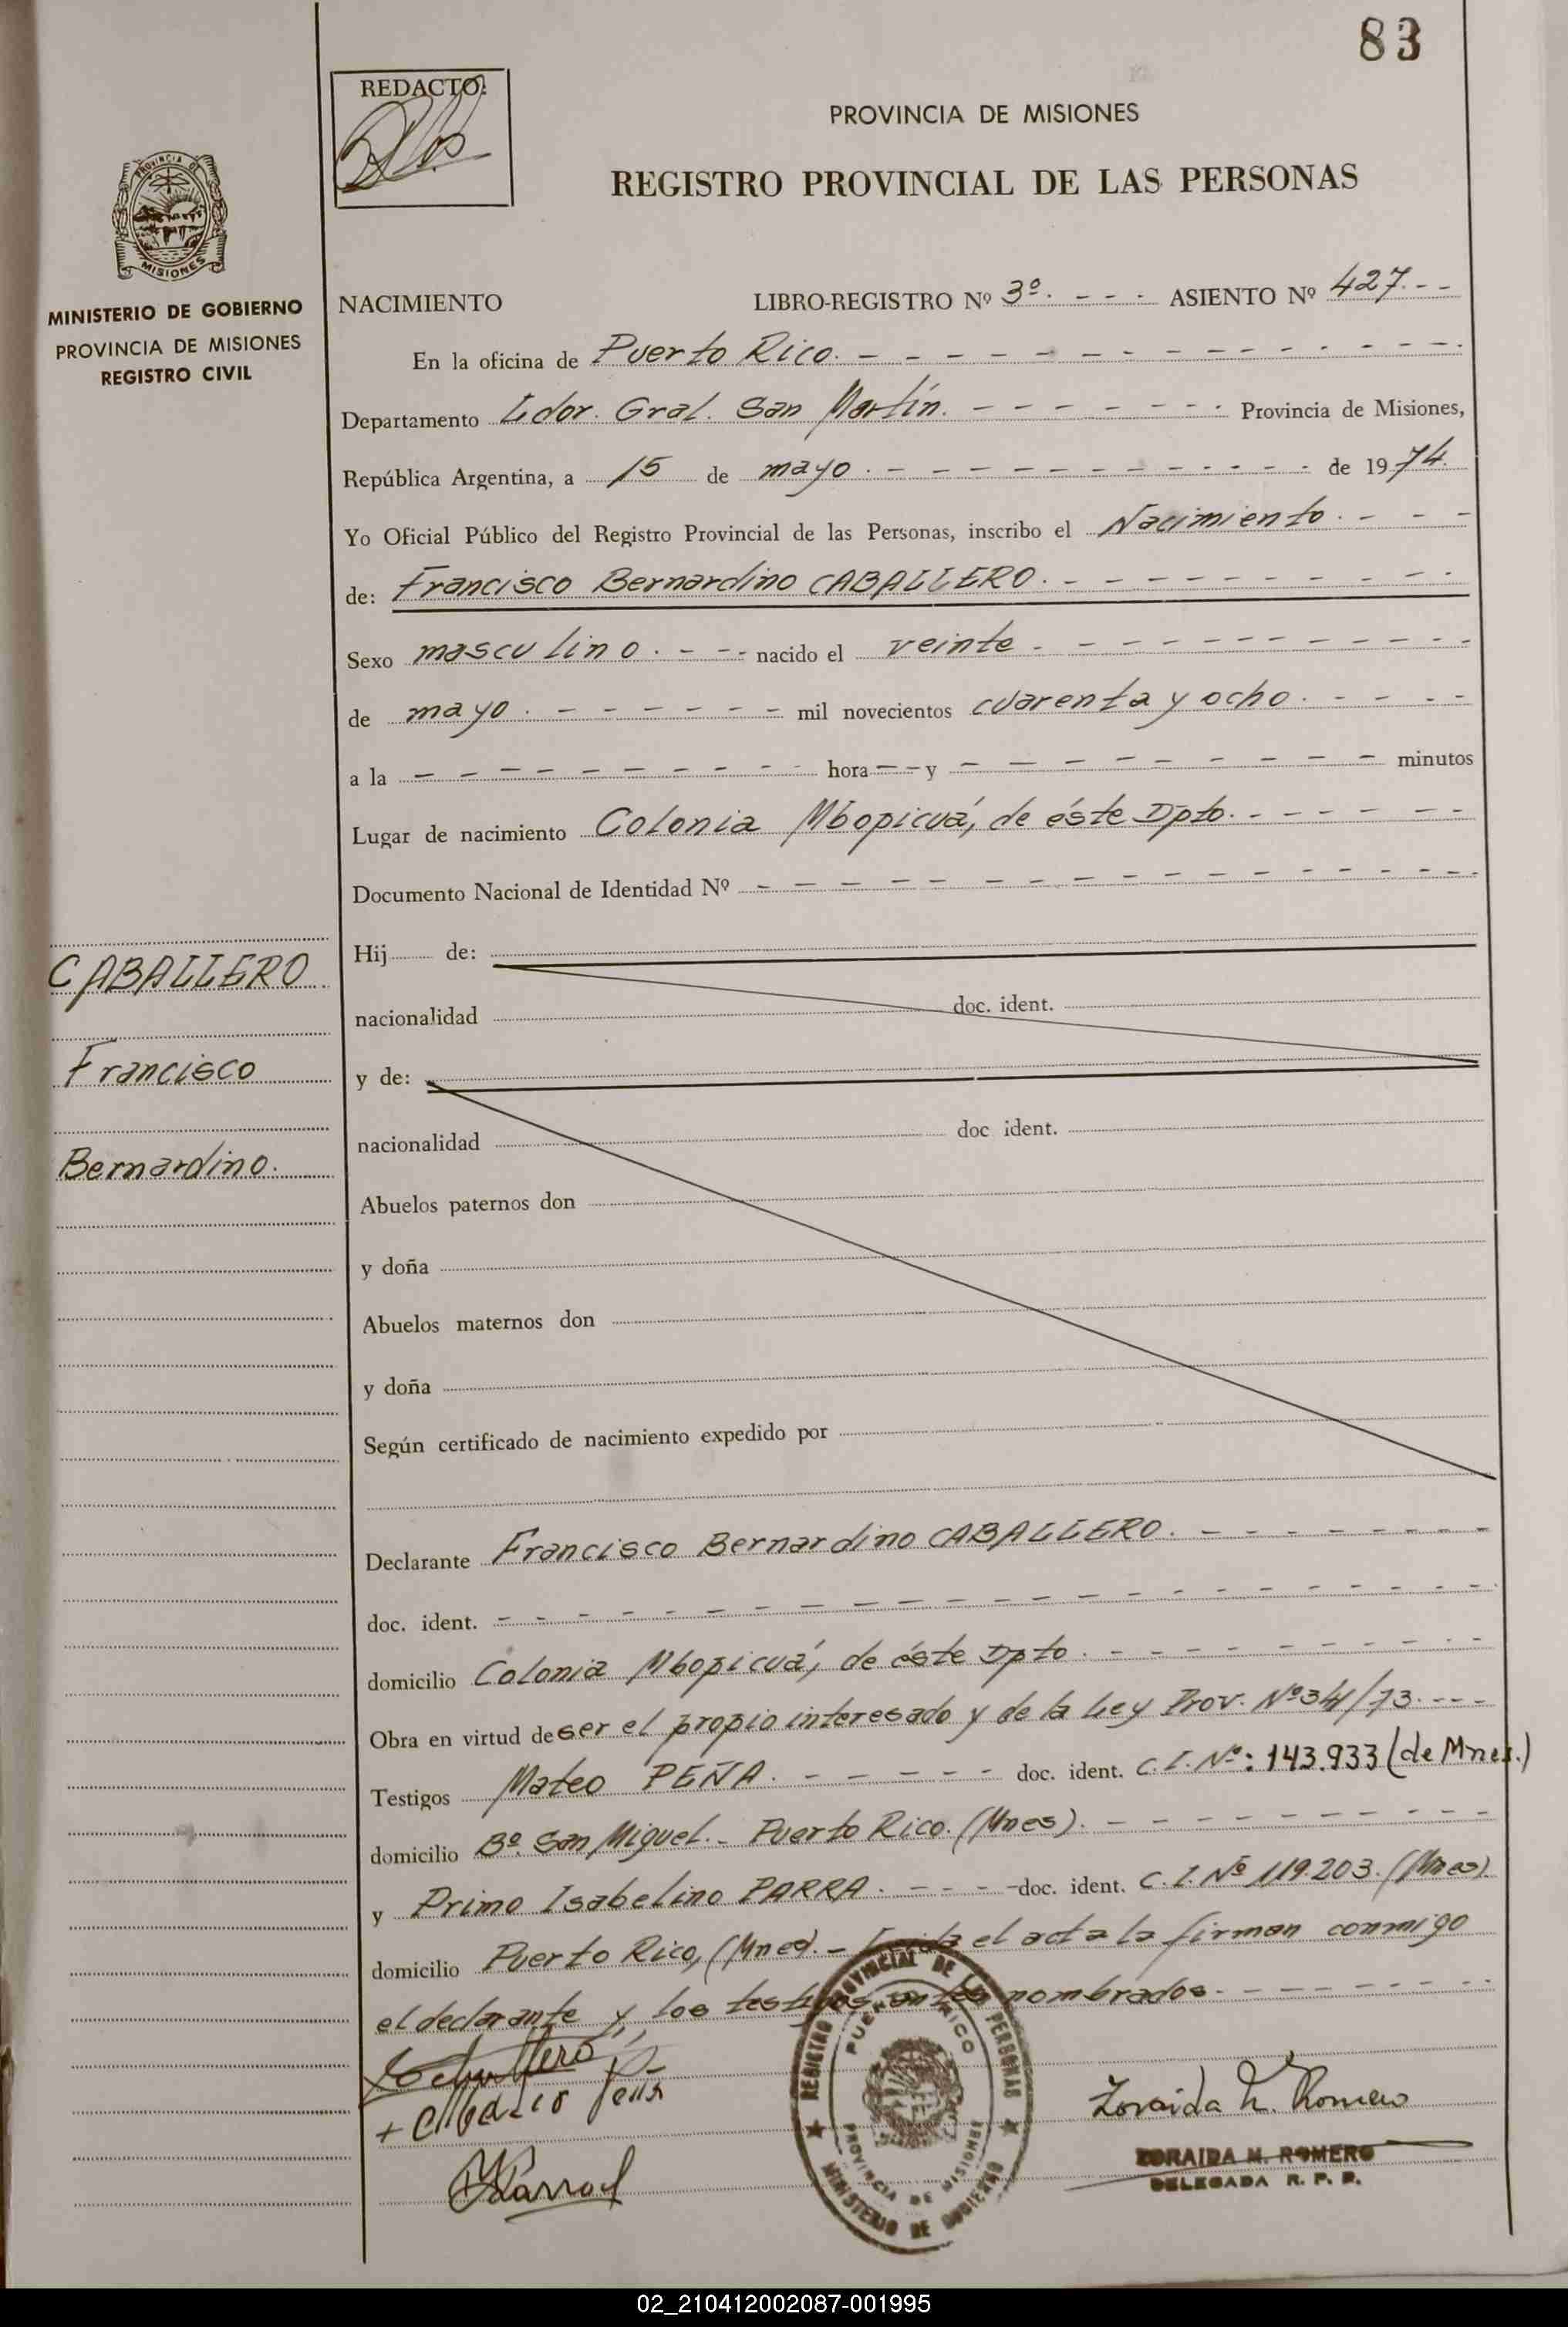 83
REDACTO:
PROVINCIA DE MISIONES
REGISTRO PROVINCIAL DE LAS PERSONAS
PROVINCIA DE
MISIONES
MINISTERIO DE GOBIERNO
PROVINCIA DE MISIONES
REGISTRO CIVIL
NACIMIENTO LIBRO-REGISTRO Nº 3º. - - - ASIENTO Nº 427. - -
En la oficina de Puerto Rico. - - - - - - - - - - - - - -
Departamento Ldor. Gral. San Martín. - - - - - - - Provincia de Misiones,
República Argentina, a 15 de mayo. - - - - - - - - - - - de 1974.
Yo Oficial Público del Registro Provincial de las Personas, inscribo el Nacimiento. - - -
de: Francisco Bernardino CABALLERO. - - - - - - - - -
Sexo masculino. - - - nacido el veinte. - - - - - - - - - -
de mayo. - - - - - - mil novecientos cuarenta y ocho. - - - -
a la - - - - - - - - - - hora - - y - - - - - - - - - minutos
Lugar de nacimiento Colonia Mbopicuá, de éste Dpto. - - - - - -
Documento Nacional de Identidad Nº - - - - - - - - - - - - - - -
Hij de:
nacionalidad doc. ident.
y de:
nacionalidad doc ident.
Abuelos paternos don
y doña
Abuelos maternos don
y doña
Según certificado de nacimiento expedido por
CABALLERO
Francisco
Bernardino.
Declarante Francisco Bernardino CABALLERO. - - - - - - -
doc. ident. - - - - - - - - - - - - - - - - - - - - - - -
domicilio Colonia Mbopicuá, de éste Dpto. - - - - - - - - -
Obra en virtud de ser el propio interesado y de la Ley Prov. Nº 341/73. - - -
Testigos Mateo PEÑA. - - - - - - doc. ident. C.I. Nº: 143.933 (de Mnes.)
domicilio Bº. San Miguel. - Puerto Rico. (Mnes). - - - - - - - - -
y Primo Isabelino PARRA. - - - - doc. ident. C.I. Nº 119.203. (Mnes).
domicilio Puerto Rico, (Mnes). - Leída el acta la firman conmigo
el declarante y los testigos antes nombrados. - - - - - - -
REGISTRO PROVINCIAL DE LAS PERSONAS
PUERTO RICO
PROVINCIA DE MISIONES
MINISTERIO DE GOBIERNO
Zoraida M. Romero
ZORAIDA M. ROMERO
DELEGADA R. P. P.
02_210412002087-001995